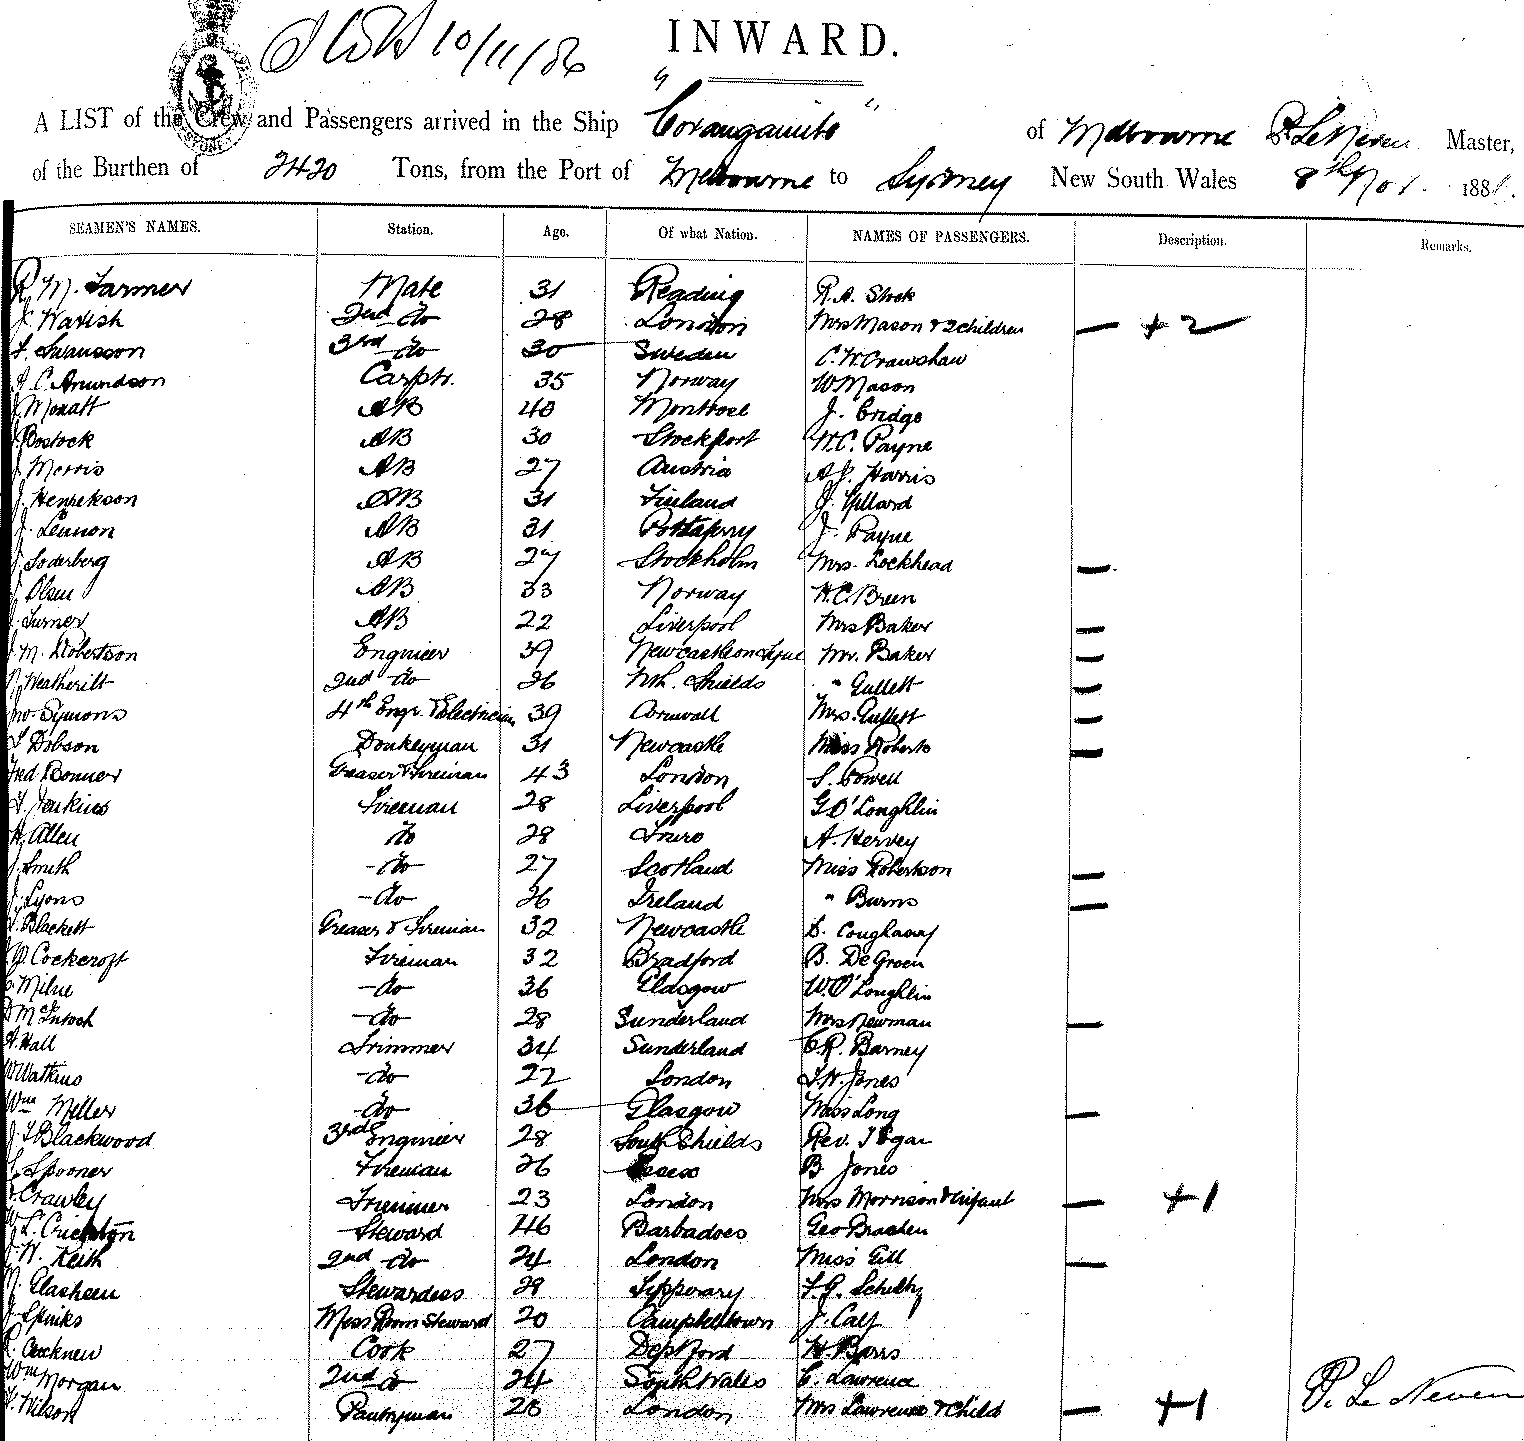 10/11/86
INWARD.
A LIST of the Crew and Passengers arrived in the Ship "Corangamite" of Melbourne P. Le Neven Master,
of the Burthen of 2420 Tons, from the Port of Melbourne to Sydney New South Wales 8th Nov. 188
SEAMEN'S NAMES. Station. Age. Of what Nation. NAMES OF PASSENGERS. Description. Remarks.
R M. Farmer Mate 31 Reading R. A. Stock
Wavish 2nd do 28 London Mrs Mason & 2 children — +2
Swansson 3rd do 30 Sweden C. W. Crawshaw
A. C. Amundson Carptr. 35 Norway W Mason
J. Moxatt AB 40 Montrose J. Bridge
J. Bostock AB 30 Stockport W. C. Payne
J. Morris AB 27 Austria A. J. Harris
J. Henrekson AB 31 Finland J.
J. Lennon AB 31 J. Payne
J. Soderberg AB 27 Stockholm Mrs. Lockhead —
Olsen AB 33 Norway H. C. Breen
Turner AB 22 Liverpool Mrs Baker —
J. M. Robertson Engineer 39 Newcastle on Tyne Mr. Baker —
Weatherilt 2nd do 26 Nth. Shields " Gullett —
Jno Symons 4th Engr. & Electrician 39 Cornwall Mrs. Gullett —
Dobson Donkeyman 31 Newcastle Miss Roberts —
Fred Bonner Greaser & Fireman 43 London S. Powell
Jenkins Fireman 28 Liverpool G O'Loughlin
H. Allen do 28 Truro A. Hervey
J. Smith do 27 Scotland Miss Robertson —
J. Lyons do 26 Ireland " Burns —
Blackett Greaser & Fireman 32 Newcastle
Cockcroft Fireman 32 Bradford B. De Groen
Milne do 36 Glasgow W. O'Loughlin
McIntosh do 28 Sunderland Mrs Newman —
A. Hall Trimmer 34 Sunderland C. R. Barney
W Watkins do 22 London J. H. Jones
Wm Meller do 36 Glasgow Miss Long —
J. Blackwood 3rd Engineer 28 South Shields Rev. J Egan
Spooner Fireman 26 Essex B Jones
Crawley Trimmer 23 London Mrs Morrison & Infant — +1
L. Crichton Steward 46 Barbadoes Geo Bracken
W. Keith 2nd do 24 London Miss Gill —
Glasheen Stewardess 29 Tipperary Schultz
J. Spinks Mess Room Steward 20 Campbeltown J. Calf
Cook 27 Deptford H. Barrs
Wm Morgan 2nd do 24 South Wales C. Lawrence
Wilson Pantryman 26 London Mrs Lawrence & Child — +1
P. Le Neven